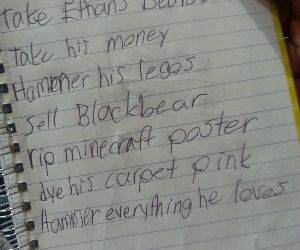 Take Ethans
Take his money
Hammer his legos
Sell Blackbear
rip minecraft poster
dye his carpet pink
Hammer everything he loves